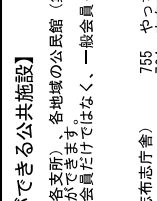 ができる公共施設】
各支所）、各地域の公民館（
ができます。
会員だけではなく、一般会員
志布志庁舎）
755 やっ